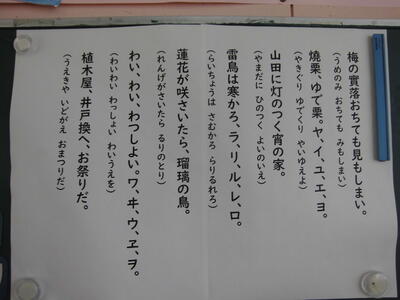 梅の實落おちても見もしまい。
（うめのみ おちても みもしまい）
燒栗、ゆで栗。ヤ、イ、ユ、エ、ヨ。
（やきぐり ゆでぐり やいゆえよ）
山田に灯のつく宵の家。
（やまだに ひのつく よいのいえ）
雷鳥は寒かろ、ラ、リ、ル、レ、ロ。
（らいちょうは さむかろ らりるれろ）
蓮花が咲さいたら、瑠璃の鳥。
（れんげがさいたら るりのとり）
わい、わい、わつしよい。ワ、ヰ、ウ、ヱ、ヲ。
（わいわい わっしょい わいうえを）
植木屋、井戸換へ、お祭りだ。
（うえきや いどがえ おまつりだ）